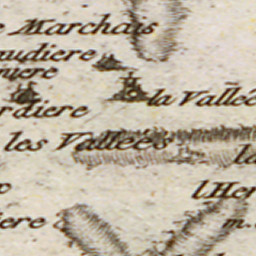 Marchais
audiere
la Vallée
rdiere
les Vallées
la
l'Her
iere
m.